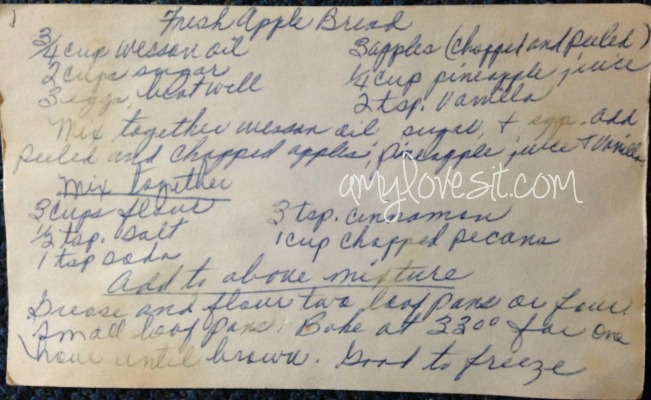 Fresh Apple Bread
3/4 cup Wesson oil 3 apples (chopped and peeled)
2 cups sugar 1/4 cup pineapple juice
3 eggs, beat well 2 tsp. Vanilla
Mix together Wesson oil, sugar, + eggs. add
peeled and chopped apples, pineapple juice + Vanilla.
amylovesit.com
Mix together
3 cups flour 3 tsp. cinnamon
1/2 tsp. salt 1 cup chopped pecans
1 tsp soda
Add to above mixture
Grease and flour two loaf pans or four
small loaf pans. Bake at 330° for one
hour until brown. Good to freeze